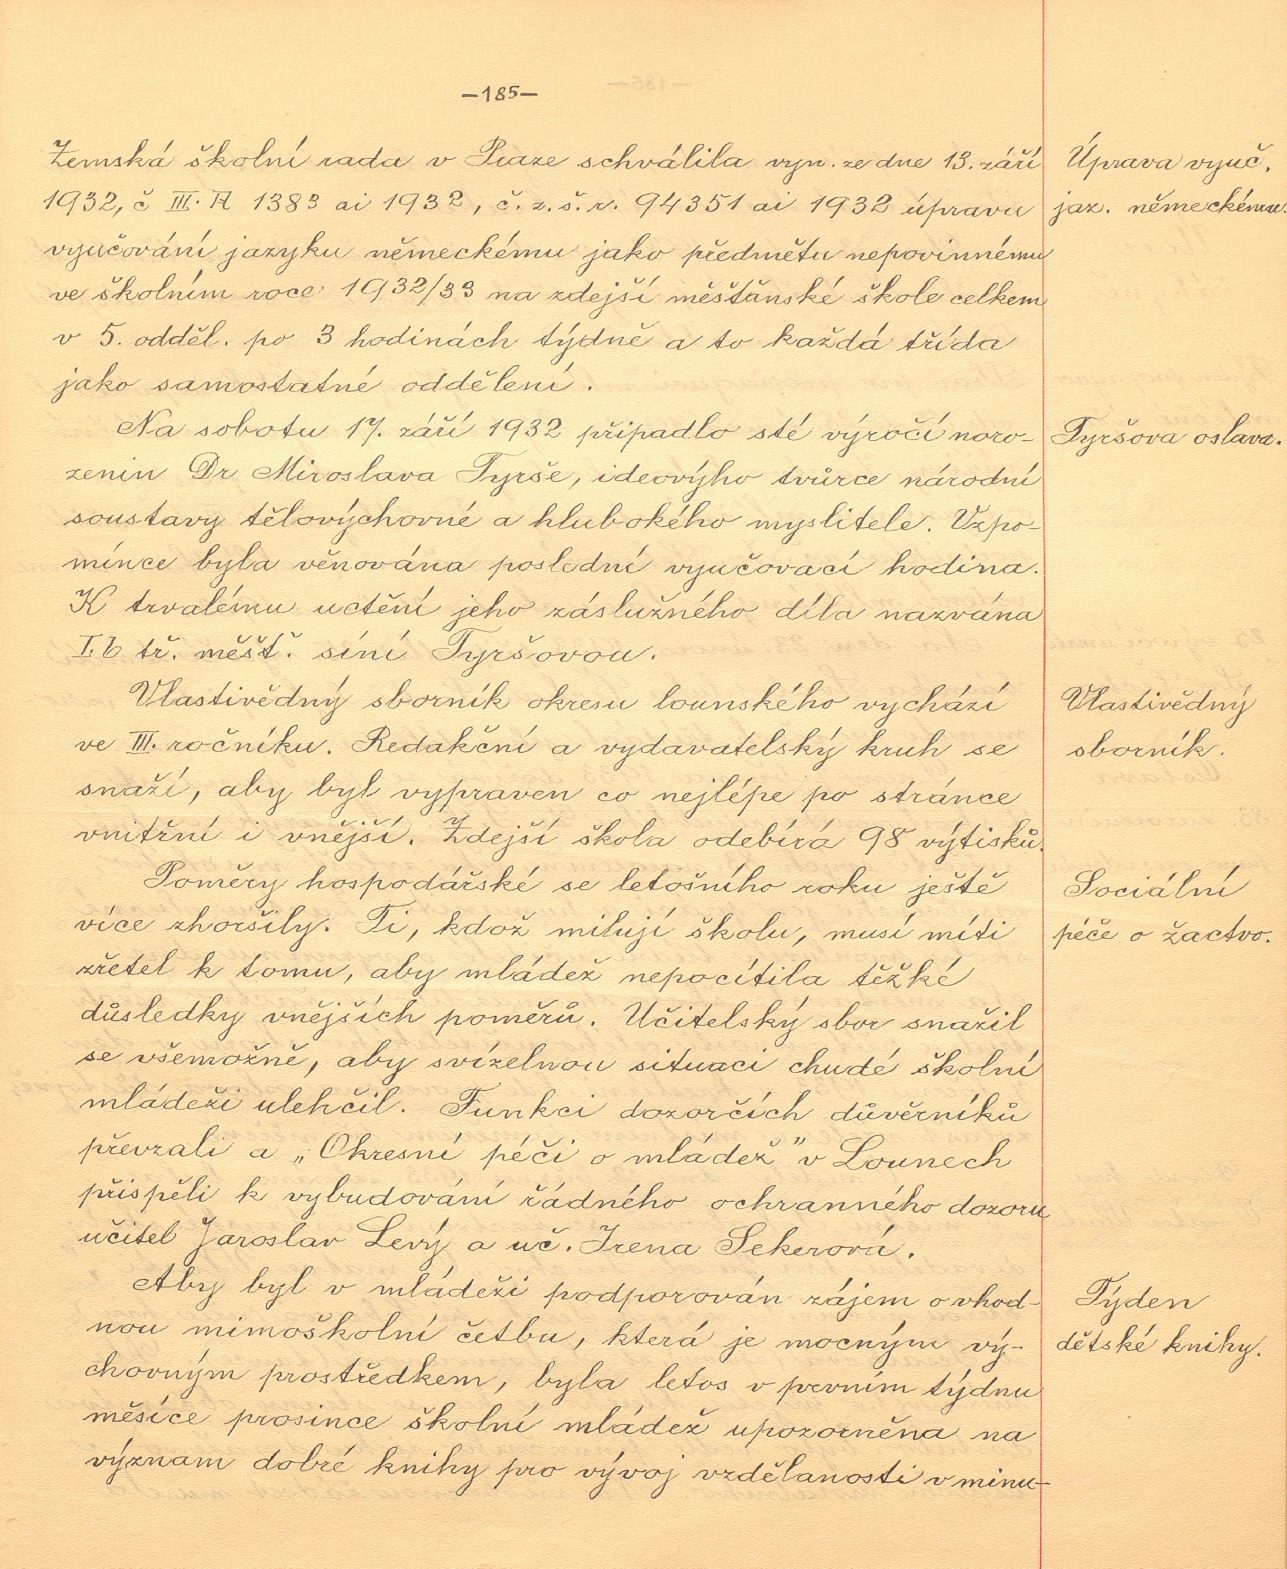 —185—
Zemská školní rada v Praze schválila vyn. ze dne 13. září
1932, č III. A 1383 ai 1932, č. z. š. r. 94351 ai 1932 úpravu
vyučování jazyku německému jako předmětu nepovinnému
ve školním roce 1932/33 na zdejší měšťanské škole celkem
v 5. odděl. po 3 hodinách týdně a to každá třída
jako samostatné oddělení.
Úprava vyuč.
jaz. německému.
Na sobotu 17. září 1932 připadlo sté výročí naro-
zenin Dr Miroslava Tyrše, ideovýho tvůrce národní
soustavy tělovýchovné a hlubokého myslitele. Vzpo-
mínce byla věnována poslední vyučovací hodina.
K trvalému uctění jeho záslužného díla nazvána
I. b tř. měšť. síní Tyršovou.
Tyršova oslava.
Vlastivědný sborník okresu lounského vychází
ve III. ročníku. Redakční a vydavatelský kruh se
snaží, aby byl vypraven co nejlépe po stránce
vnitřní i vnější. Zdejší škola odebírá 98 výtisků.
Vlastivědný
sborník.
Poměry hospodářské se letošního roku ještě
více zhoršily. Ti, kdož milují školu, musí míti
zřetel k tomu, aby mládež nepocítila těžké
důsledky vnějších poměrů. Učitelský sbor snažil
se všemožně, aby svízelnou situaci chudé školní
mládeži ulehčil. Funkci dozorčích důvěrníků
převzali a „Okresní péči o mládež" v Lounech
přispěli k vybudování řádného ochranného dozoru
učitel Jaroslav Levý a uč. Irena Sekerová.
Sociální
péče o žactvo.
Aby byl v mládeži podporován zájem o vhod-
nou mimoškolní četbu, která je mocným vý-
chovným prostředkem, byla letos v prvním týdnu
měsíce prosince školní mládež upozorněna na
význam dobré knihy pro vývoj vzdělanosti v minu-
Týden
dětské knihy.